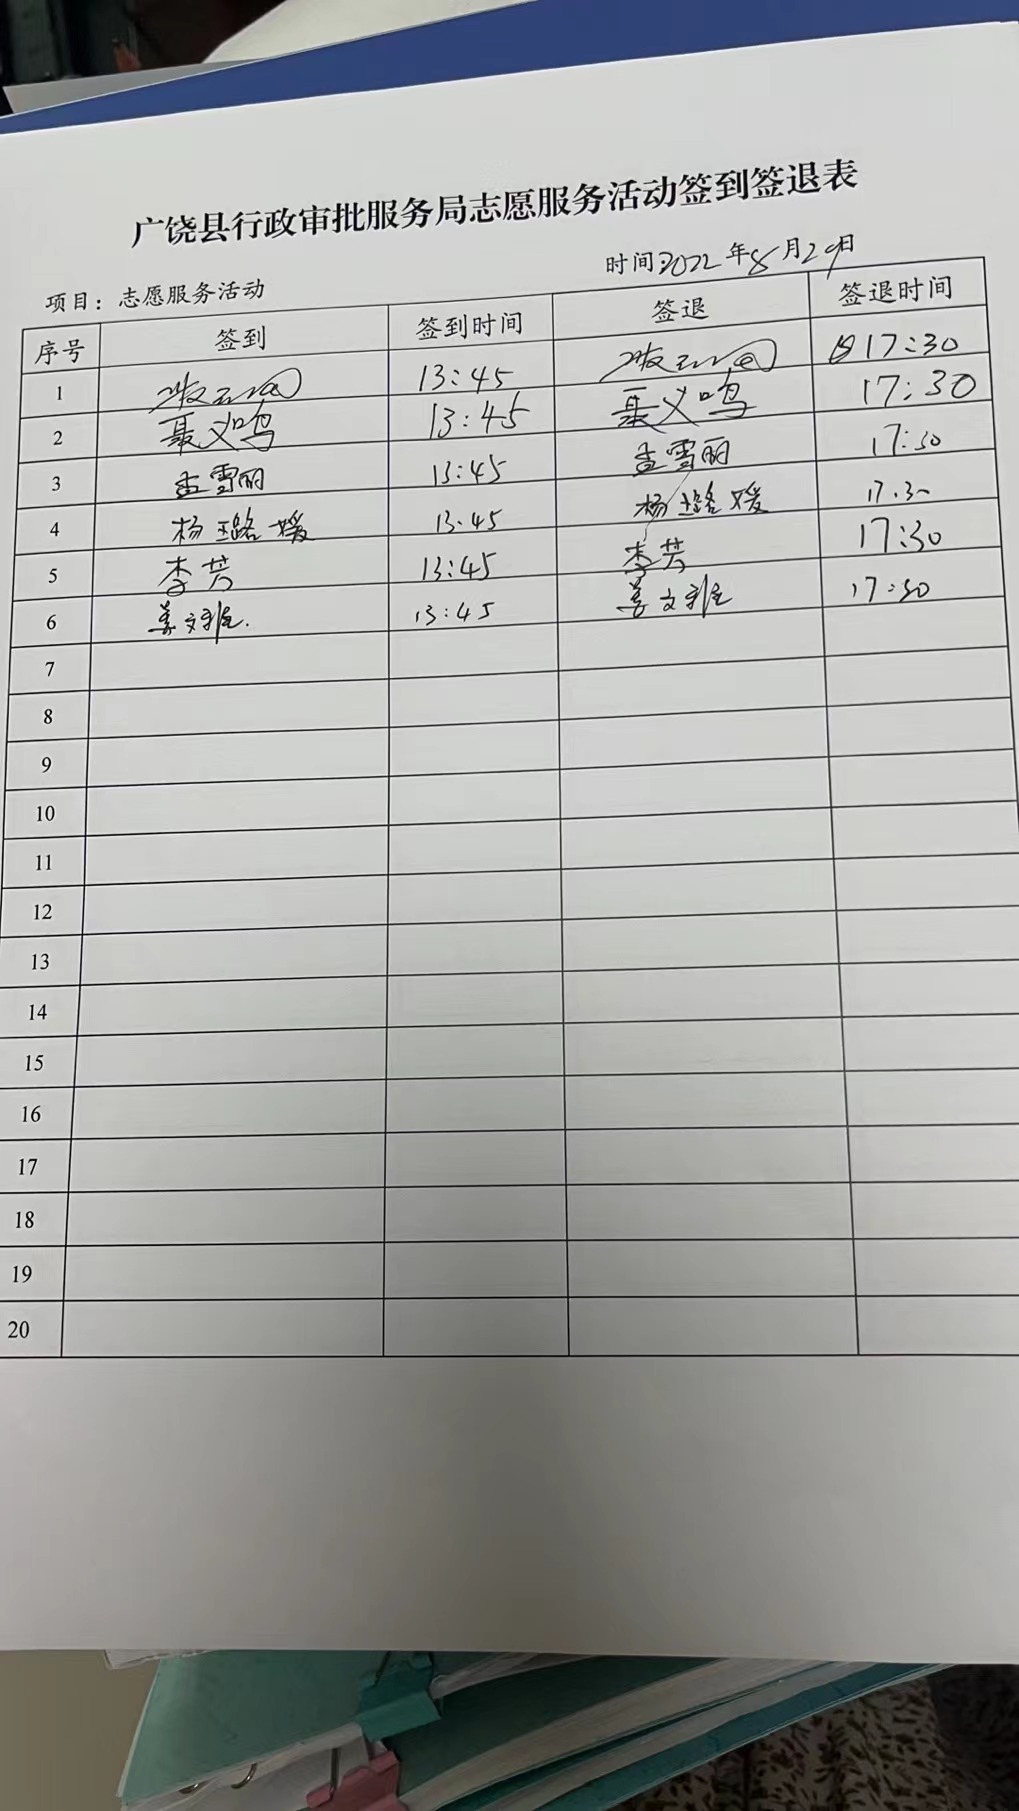 广饶县行政审批服务局志愿服务活动签到签退表
项目：志愿服务活动 时间2022年8月29日
序号 签到 签到时间 签退 签退时间
1 13:45 17:30
2 聂义鸣 13:45 聂义鸣 17:30
3 孟雪丽 13:45 孟雪丽 17:30
4 杨璐媛 13:45 杨璐媛 17:30
5 李芳 13:45 李芳 17:30
6 姜文雅 13:45 姜文雅 17:30
7
8
9
10
11
12
13
14
15
16
17
18
19
20